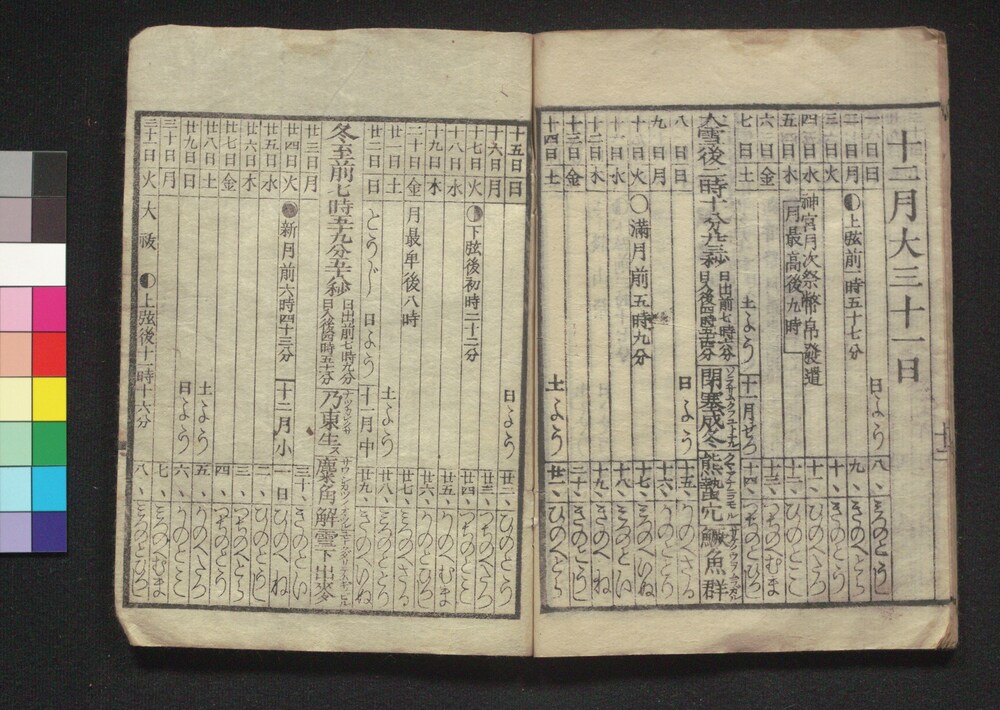 十二月大三十一日
一日日 日よう 八、みづのとうし
二日月 ◐上弦前一時五十七分 九、きのへとら
三日火 十、きのとう
四日水 神宮月次祭幣帛發遣 十一、ひのへたつ
五日木 月最高後九時 十二、ひのとみ
六日金 十三、つちのへむま
七日土 土よう 十一月せつ 十四、つちのとひつじ
大雪後一時十分廿三秒 日出前七時六分 日入後四時五十四分 閉塞成冬 熊蟄穴 鱖魚群
八日日 日よう 十五、かのへさる
九日月 十六、かのととり
十日火 ○満月前五時九分 十七、みづのへいぬ
十一日水 十八、みづのとい
十二日木 十九、きのへね
十三日金 二十、きのとうし
十四日土 土よう 廿一、ひのへとら
十五日日 日よう 廿二、ひのとう
十六日月 廿三、つちのへたつ
十七日火 ◑下弦後初時二十二分 廿四、つちのとみ
十八日水 廿五、かのへむま
十九日木 廿六、かのとひつじ
二十日金 月最卑後八時 廿七、みづのへさる
廿一日土 土よう 廿八、みづのととり
廿二日日 とうじ 日よう 十一月中 廿九、きのへいぬ
冬至前七時五十九分五十秒 日出前七時九分 日入後四時五十一分 乃東生 麋角解 雪下出麥
廿三日月 三十、きのとい
廿四日火 ●新月前六時四十三分 十二月小 一日 ひのへね
廿五日水 二、ひのとうし
廿六日木 三、つちのへとら
廿七日金 四、つちのとう
廿八日土 土よう 五、かのへたつ
廿九日日 日よう 六、かのとみ
三十日月 七、みづのへむま
三十一日火 大祓 ◐上弦後十一時十六分 八、みづのとひつじ